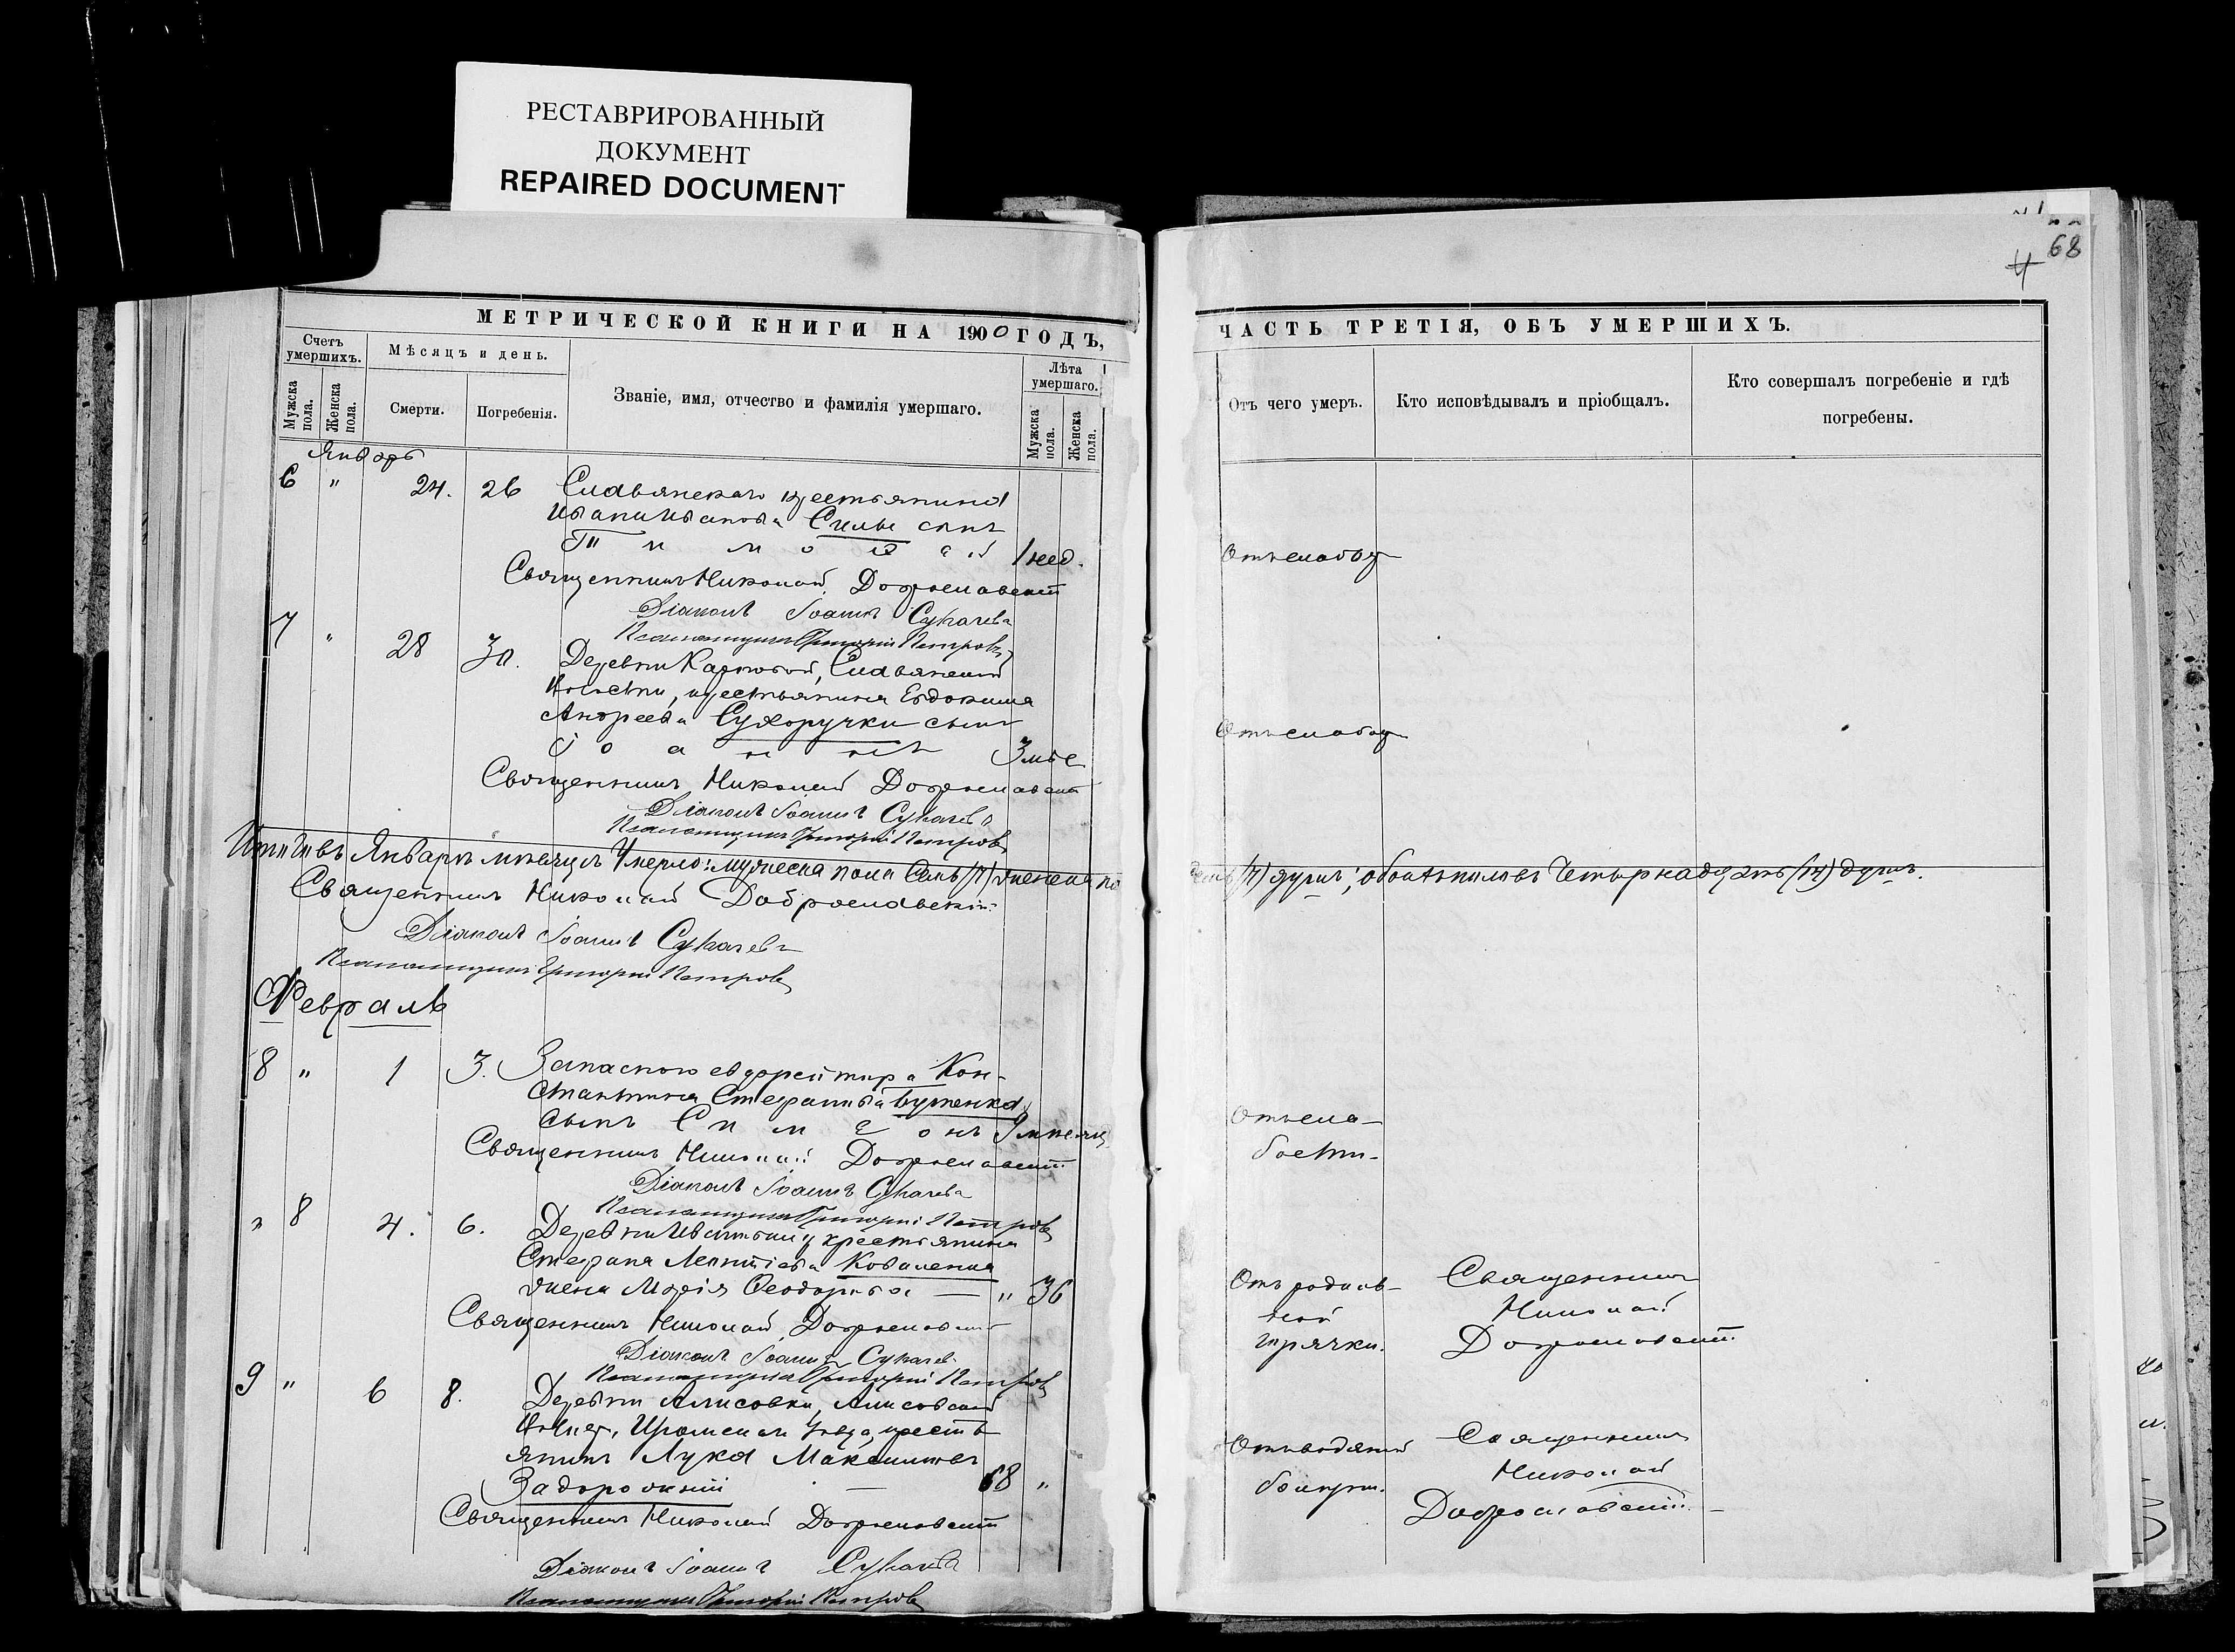 РЕСТАВРИРОВАННЫЙ
ДОКУМЕНТ
REPAIRED DOCUMENT
68
4
МЕТРИЧЕСКОЙ КНИГИ НА 1900 ГОДЪ,
Счетъ умершихъ.
Мѣсяцъ и день.
Званіе, имя, отчество и фамилія умершаго.
Лѣта умершаго.
Мужска пола.
Женска пола.
Смерти.
Погребенія.
Мужска пола.
Женска пола.
Январь
6 " 24. 26 Славянскаго крестьянина
Ивана Иванова Силы сынъ
Тимофей 1 нед.
Священникъ Николай Доброславскій
Діаконъ Іоаннъ Сукачевъ
Псаломщикъ Григорій Петровъ
7 " 28 30. Деревни Карповой, Славянской
волости, крестьянина Евдокима
Андреева Сухоручки сынъ
Іоаннъ 3 мѣс
Священникъ Николай Доброславскій
Діаконъ Іоаннъ Сукачевъ
Псаломщикъ Григорій Петровъ
Итого въ Январѣ мѣсяцѣ умерло: мужеска пола семь (7) женска по
Священникъ Николай Доброславскій
Діаконъ Іоаннъ Сукачевъ
Псаломщикъ Григорій Петровъ
Февраль
8 " 1 3. Запасного ефрейтора Кон-
стантина Стефанова
сынъ Симеонъ 9 мѣсяц
Священникъ Николай Доброславскій
Діаконъ Іоаннъ Сукачевъ
Псаломщикъ Григорій Петровъ
" 8 4. 6. Деревни крестьянина
Стефана Леонтіева Коваленка
жена Марія Ѳеодорова — " 36
Священникъ Николай Доброславскій
Діаконъ Іоаннъ Сукачевъ
Псаломщикъ Григорій Петровъ
9 " 6 8. Деревни Алисовки, Алисовской
уѣзда, кресть
янинъ Лука Максимовъ
Задорожній — 68 "
Священникъ Николай Доброславскій
Діаконъ Іоаннъ Сукачевъ
Псаломщикъ Григорій Петровъ
ЧАСТЬ ТРЕТІЯ, ОБЪ УМЕРШИХЪ.
Отъ чего умеръ.
Кто исповѣдывалъ и пріобщалъ.
Кто совершалъ погребеніе и гдѣ
погребены.
Отъ слабос
Отъ слабос
семь (7) душъ; обоего половъ четырнадцать (14) душъ.
Отъ сла-
бости.
Отъ родиль-
ной
горячки.
Священникъ
Николай
Доброславскій
Отъ водяной
болѣзни.
Священникъ
Николай
Доброславскій